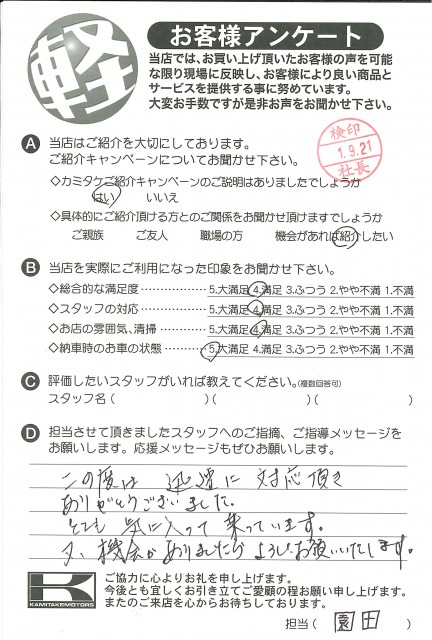 軽
お客様アンケート
当店では、お買い上げ頂いたお客様の声を可能
な限り現場に反映し、お客様により良い商品と
サービスを提供する事に努めています。
大変お手数ですが是非お声をお聞かせ下さい。
検印
1.9.21
社長
A 当店はご紹介を大切にしております。
ご紹介キャンペーンについてお聞かせ下さい。
◇カミタケご紹介キャンペーンのご説明はありましたでしょうか
はい いいえ
◇具体的にご紹介頂ける方とのご関係をお聞かせ頂けますでしょうか
ご親族 ご友人 職場の方 機会があれば紹介したい
B 当店を実際にご利用になった印象をお聞かせ下さい。
◇総合的な満足度 ………… 5.大満足 4.満足 3.ふつう 2.やや不満 1.不満
◇スタッフの対応 ………… 5.大満足 4.満足 3.ふつう 2.やや不満 1.不満
◇お店の雰囲気、清掃 ……… 5.大満足 4.満足 3.ふつう 2.やや不満 1.不満
◇納車時のお車の状態 ……… 5.大満足 4.満足 3.ふつう 2.やや不満 1.不満
C 評価したいスタッフがいれば教えてください。(複数回答可)
スタッフ名 ( )( )( )
D 担当させて頂きましたスタッフへのご指摘、ご指導メッセージを
お願いします。応援メッセージもぜひお願いします。
この度は 迅速に 対応頂き
ありがとうございました。
とても 気に入って 乗っています。
又、機会がありましたら よろしくお願いいたします。
KAMITAKEMOTORS
ご協力に心よりお礼を申し上げます。
今後とも宜しくお引き立てご愛顧の程お願い申し上げます。
またのご来店を心からお待ちしております。
担当 ( 園田 )